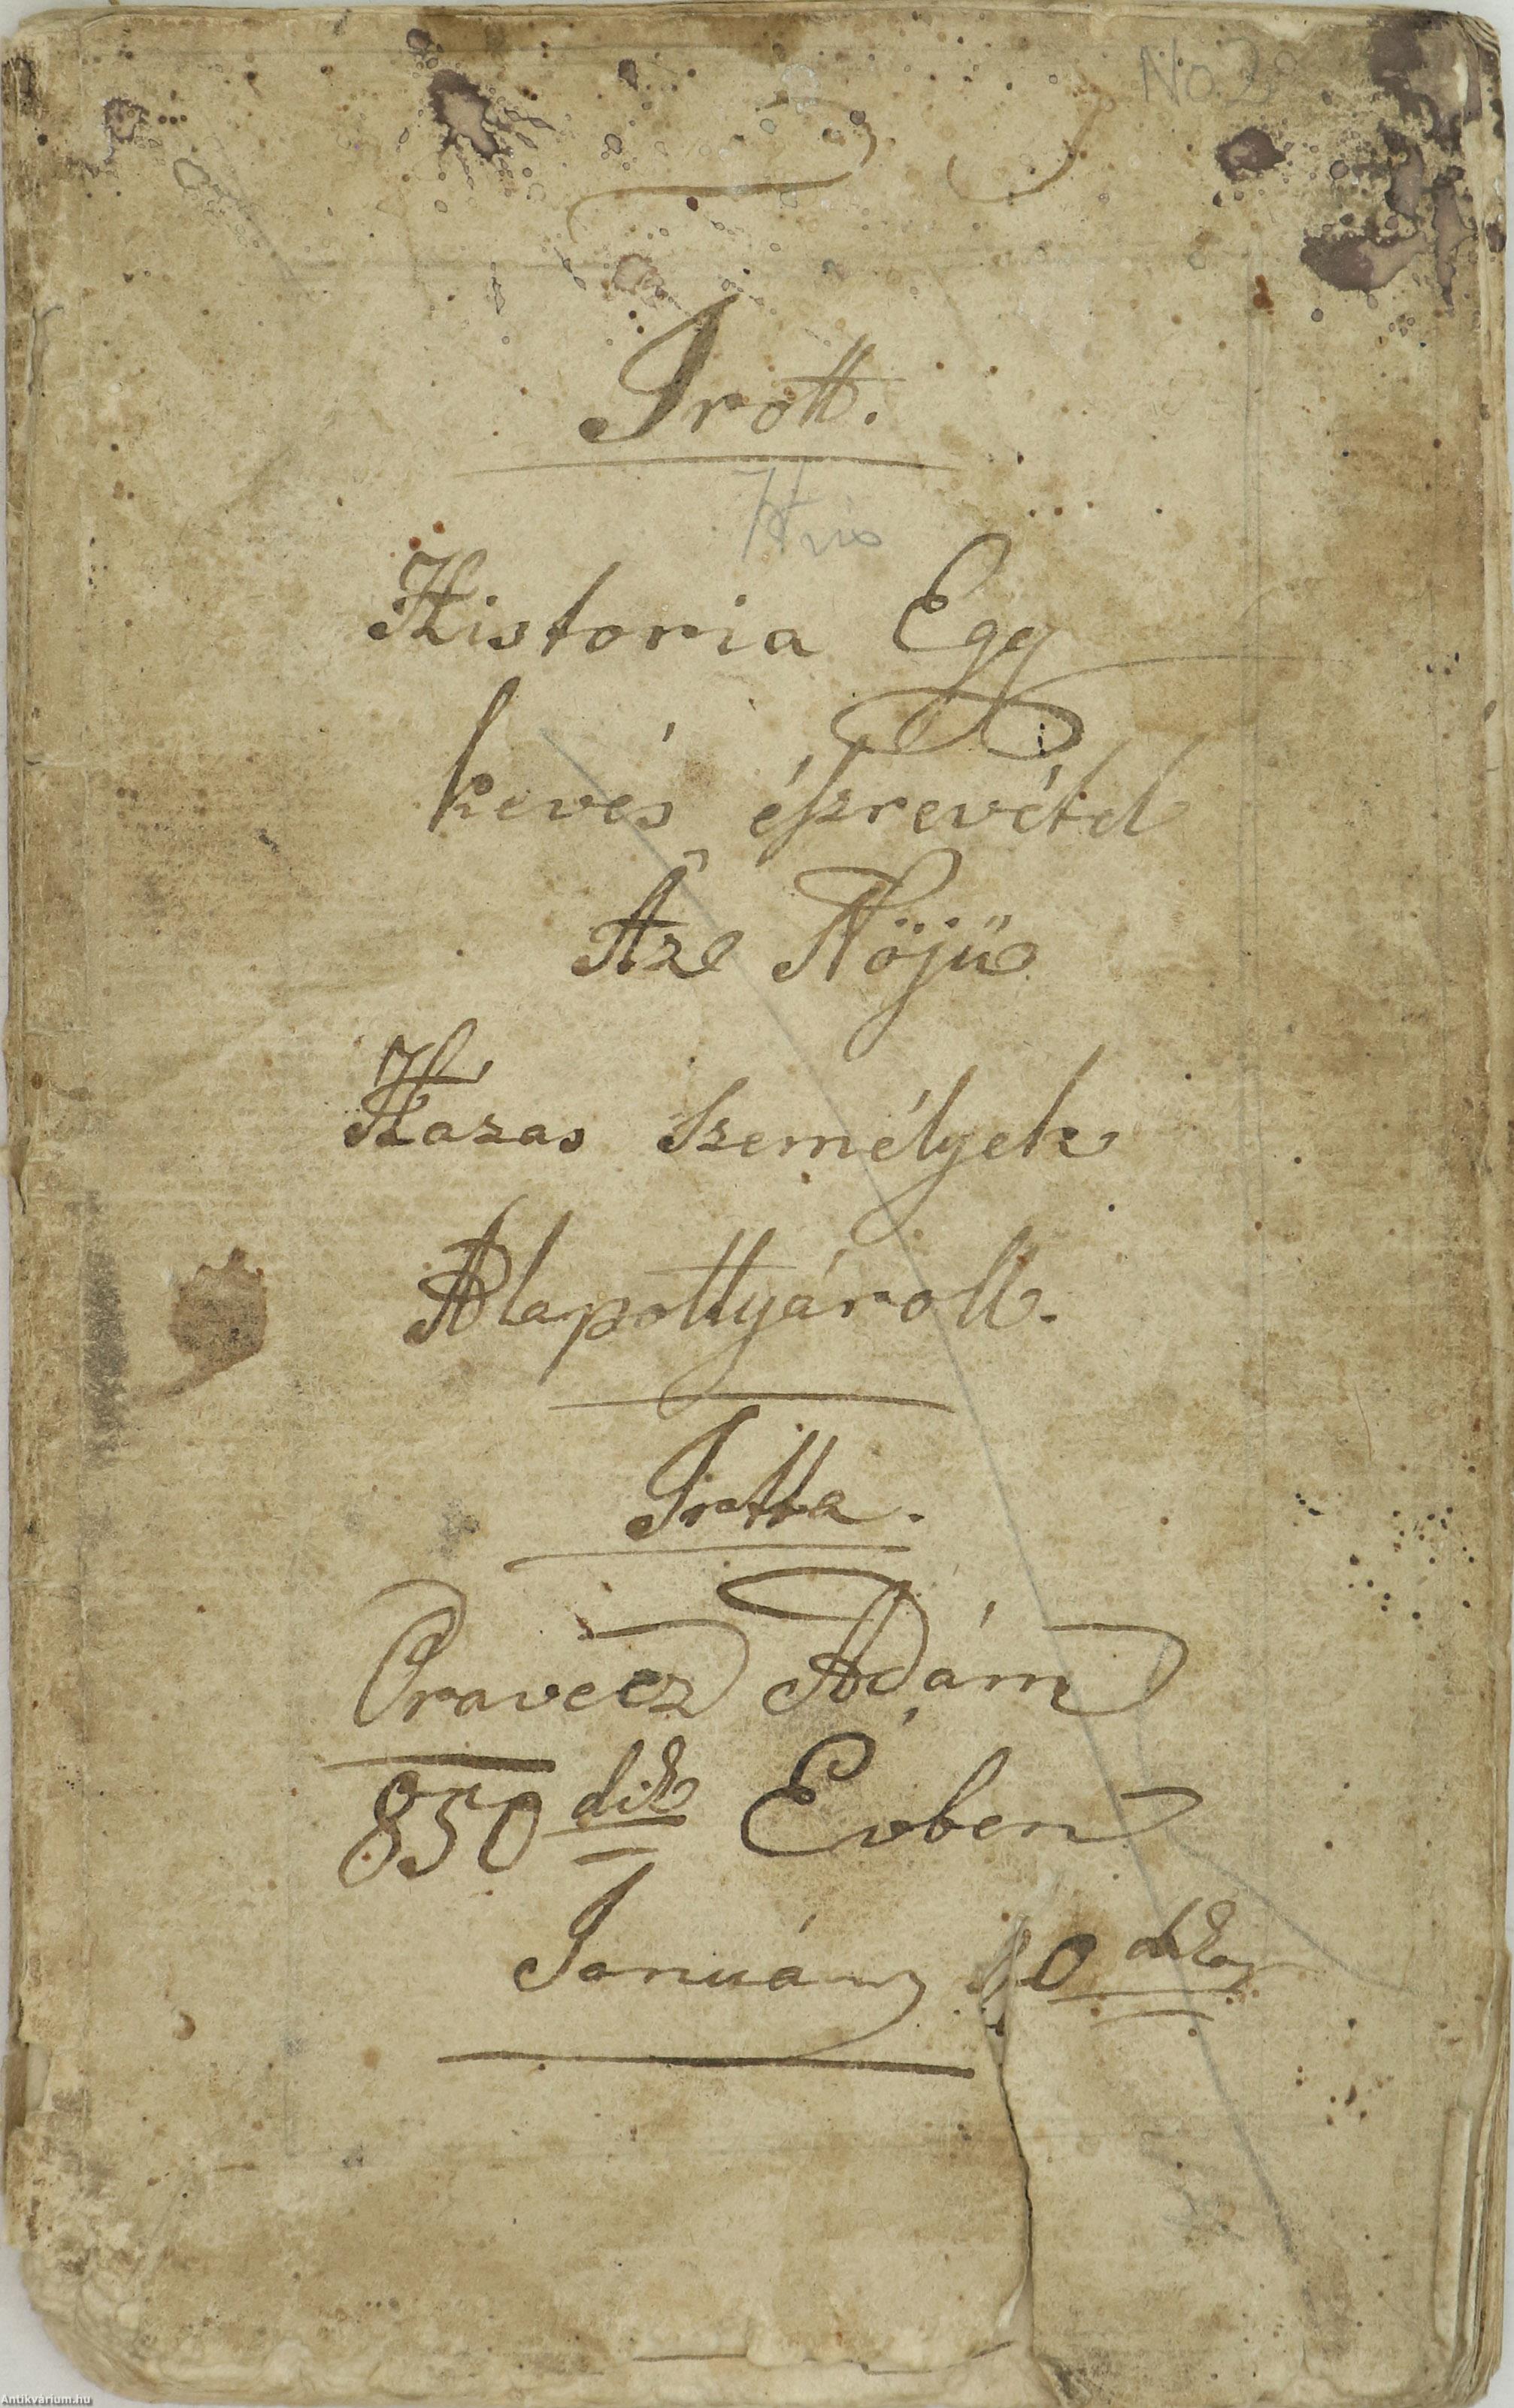 No 2
Irott.
Historia Egy
kevés észrevétel
Az Ifjú
Hazas személyek
Alapottyároll.
Irotta.
Oravecz Adám
850 dik Evben
Január 10 dikén
Antikvárium.hu